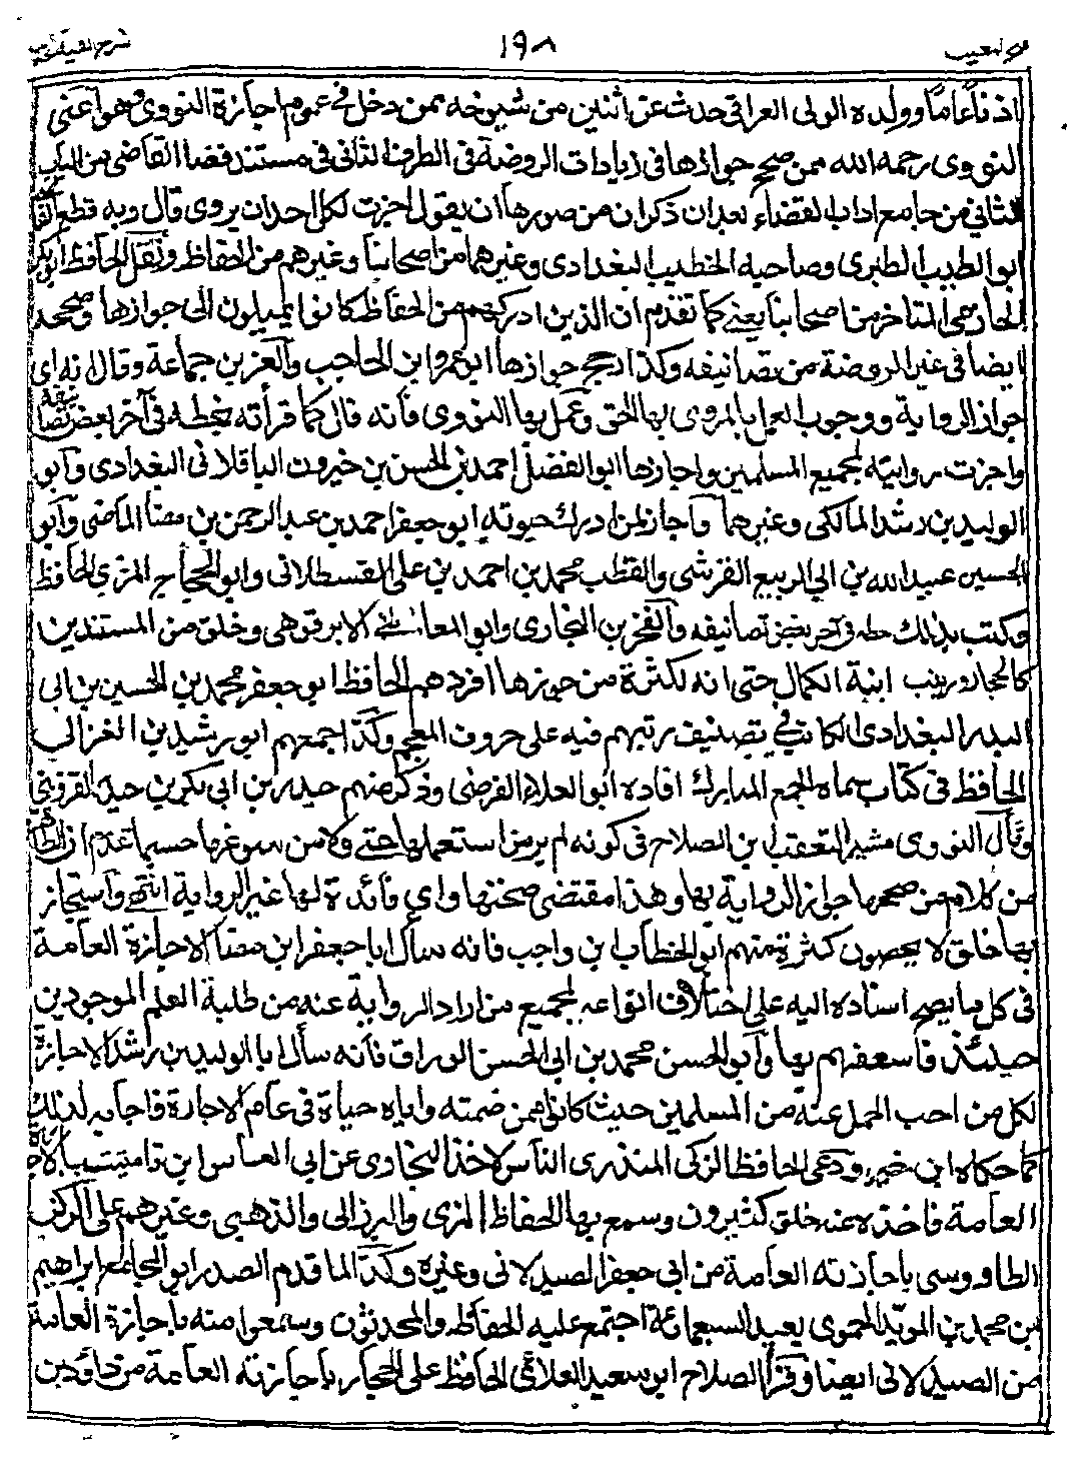 فتح المغيث ١٩٨ شرح الفية الحديث
اذنا عاما وولده الولى العراقى حدث عن اثنين من شيوخه ممن دخل فى عموم اجازة النووى وهو اعنى
النووى رحمه الله ممن صحح جوازها فى زيادات الروضة فى الطرف الثانى فى مستند قضا القاضى من الباب
الثانى من جامع اداب القضاء بعد ان ذكر ان من صورها ان يقول اجزت لكل احد ان يروى قال وبه قطع القاضى
ابو الطيب الطبرى وصاحبه الخطيب البغدادى وغيرهما من اصحابنا وغيرهم من الحفاظ ونقل الحافظ ابو بكر
الحازمى المتاخر من اصحابنا يعنى كما تقدم ان الذين ادركهم من الحفاظ كانوا يميلون الى جوازها وصححه
ايضا فى غير الروضة من تصانيفه وكذا رجح جوازها ابو عمرو ابن الحاجب والعز بن جماعة وقال انه اى
جواز الرواية ووجوب العمل بالمروى بها الحق وعمل بها النووى فانه قال كما قرأته بخطه فى آخر بعض تصانيفه
واجزت روايته لجميع المسلمين واجازها ابو الفضل احمد بن الحسن بن خيرون الباقلانى البغدادى وابو
الوليد بن رشد المالكى وغيرهما واجاز لمن ادرك حيوته ابو جعفر احمد بن عبد الرحمن بن مضا الماضى وابو
الحسين عبيد الله بن ابى الربيع القرشى والقطب محمد بن احمد بن على القسطلانى وابو الحجاج المزى الحافظ
وكتب بذلك خطه فى آخر بعض تصانيفه والفخر بن البخارى وابو المعالى الابرقوهى وخلق من المسندين
كالحجار وزينب ابنة الكمال حتى انه لكثرة من جوزها افردهم الحافظ ابو جعفر محمد بن الحسين بن ابى
البدر البغدادى الكاتب فى تصنيف رتبهم فيه على حروف المعجم وكذا جمعهم ابو رشيد بن الغزالى
الحافظ فى كتاب سماه الجمع المبارك افاده ابو العلاء الفرضى وذكر منهم حيدر بن ابى بكر بن حيدر القزوينى
وقال النووى مشيرا لتعقب ابن الصلاح فى كونه لم ير من استعملها حتى ولا من سوغها حسبما تقدم ان الظاهر
من كلام من صححها جواز الرواية بها وهذا مقتضى صحتها واى فائدة لها غير الرواية انتهى واستجاز
بها خلق لا يحصون كثرة منهم ابو الخطاب ابن واجب فانه سأل ابا جعفر ابن مضا الاجازة العامة
فى كل ما يصح اسناده اليه على اختلاف انواعه لجميع من اراد الرواية عنه من طلبة العلم الموجودين
حينئذ فاسعفهم بها وابو الحسن محمد بن ابى الحسن الوراق فانه سأل ابا الوليد بن رشد الاجازة
لكل من احب الحمل عنه من المسلمين حيث كانوا ممن ضمته واياه حياة فى عام الاجازة فاجابه لذلك
كما حكاه ابن خير ودعى الحافظ الزكى المنذرى الناس لاخذ البخارى عن ابى العباس ابن تامتيت بالاجازة
العامة فاخذه عنه خلق كثيرون وسمع بها الحفاظ المزى والبرزالى والذهبى وغيرهم على الركن
الطاووسى باجازته العامة من ابى جعفر الصيدلانى وغيره وكذا لما قدم الصدر ابو المجامع ابراهيم
بن محمد بن المويد الحموى بعيد السبعمائة اجتمع عليه الحفاظ والمحدثون وسمعوا منه باجازة العامة
من الصيدلانى ايضا وقرأ الصلاح ابو سعيد العلائى الحافظ على الحجار باجازته العامة من داؤد بن